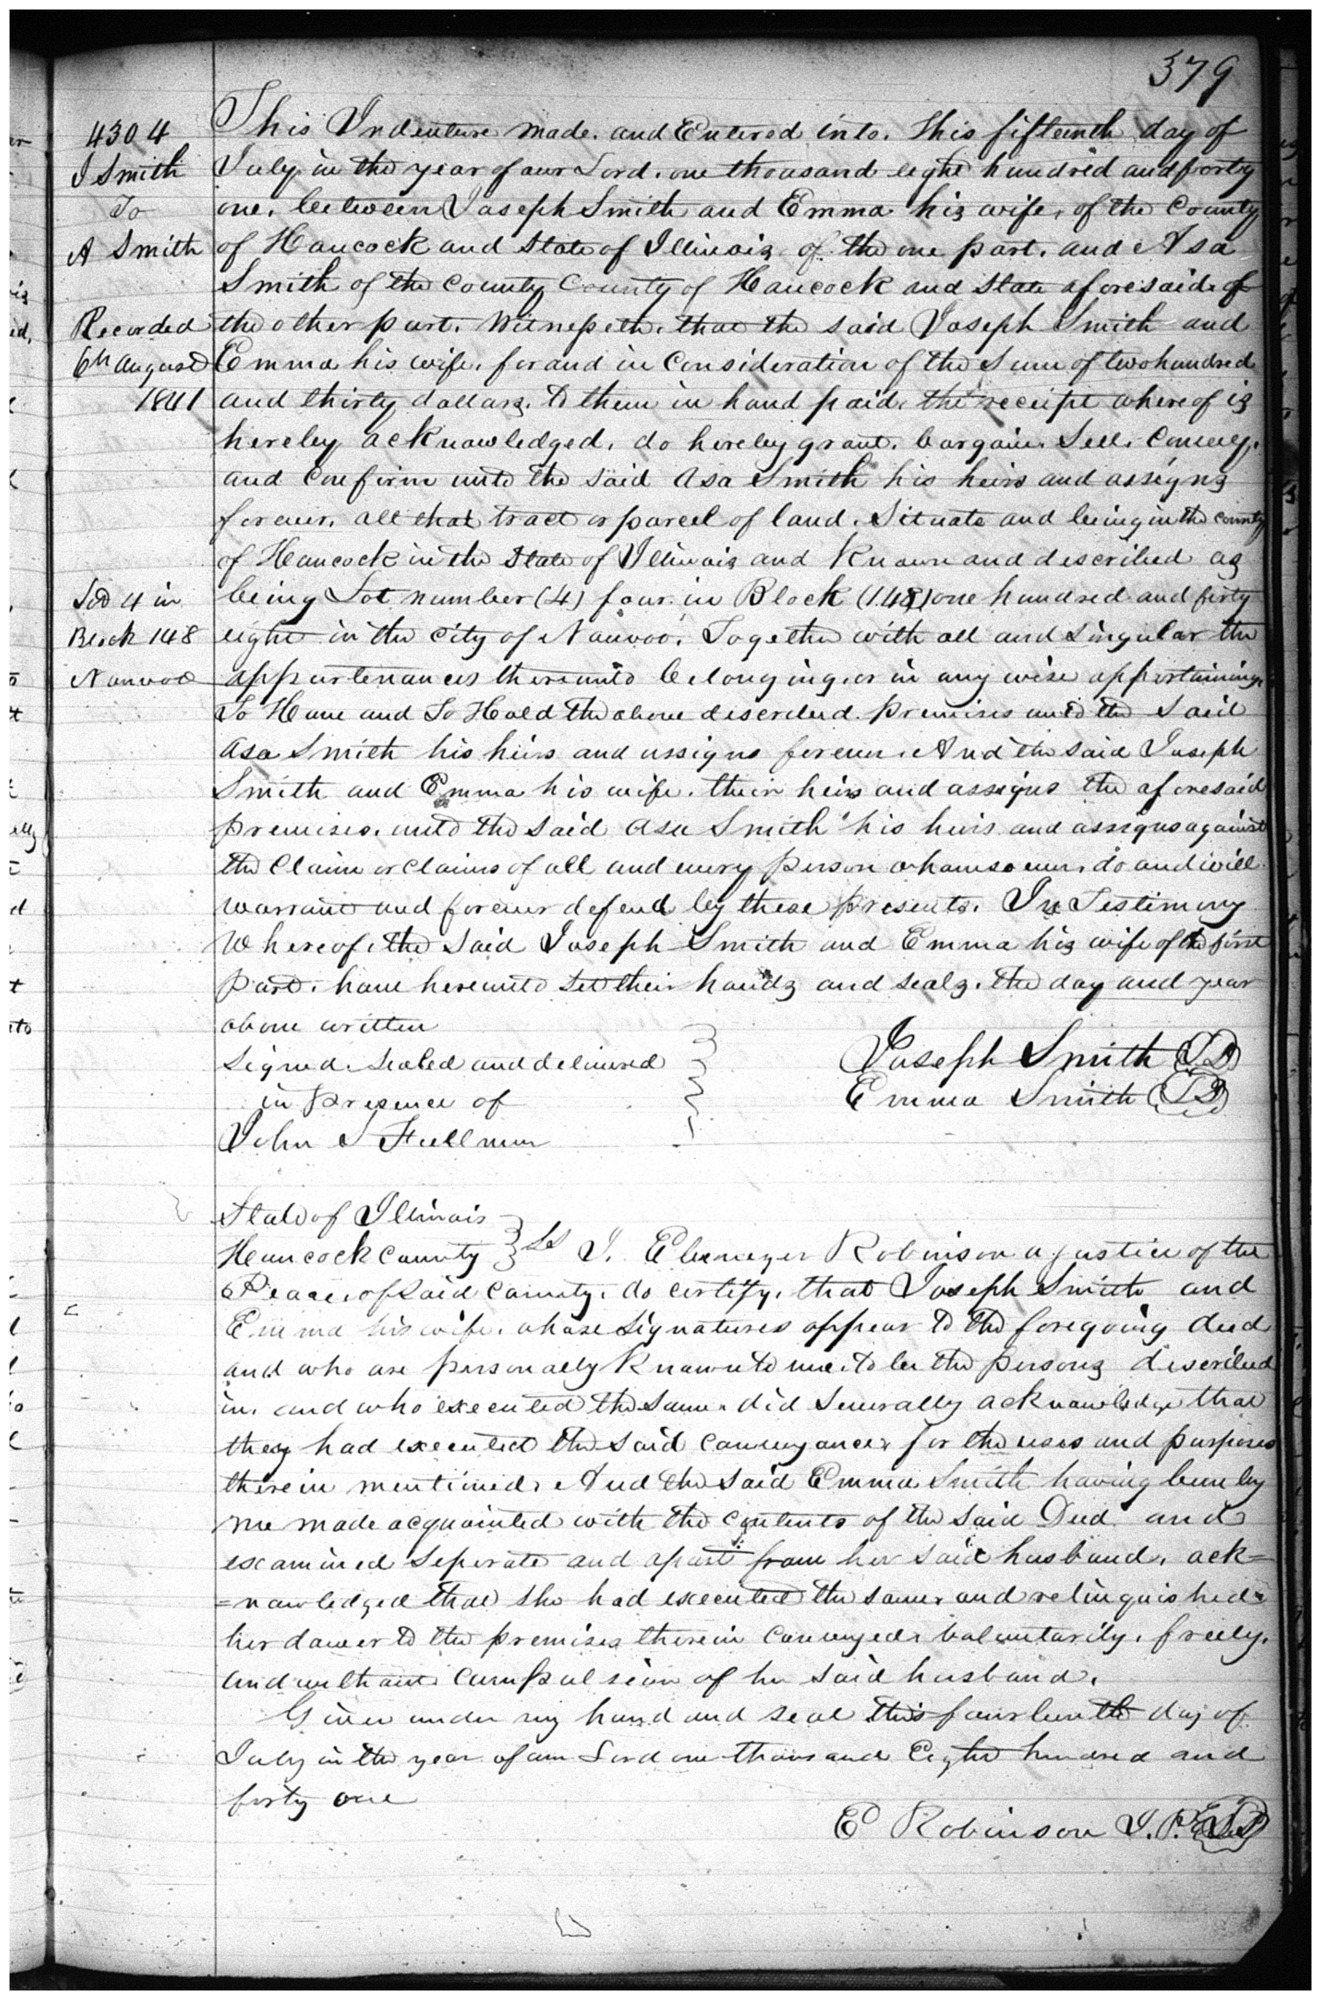 379
4304
J Smith
To
A Smith
Recorded
6th August
1841
Lot 4 in
Block 148
Nauvoo
This Indenture made. and Entered into. this fifteenth day of
July in the year of our Lord. one thousand eight hundred and forty
one. between Joseph Smith and Emma his wife, of the County
of Hancock and State of Illinois of the one part. and Asa
Smith of the County County of Hancock and State aforesaid. of
the other part. Witnesseth. that the said Joseph Smith and
Emma his wife. for and in Consideration of the Sum of two hundred
and thirty dollars. to them in hand paid. the receipt whereof is
hereby acknowledged. do hereby grant. bargain. Sell. Convey.
and Confirm unto the said Asa Smith his heirs and assigns
forever. all that tract or parcel of land. Situate and being in the county
of Hancock in the State of Illinois and Known and described as
being Lot number (4) four in Block (148) one hundred and forty
eight in the City of Nauvoo. Together with all and Singular the
appurtenances thereunto belonging. or in any wise appertaining.
To Have and To Hold the above described premises unto the Said
Asa Smith his heirs and assigns forever. And the said Joseph
Smith and Emma his wife. their heirs and assigns the aforesaid
premises. unto the said Asa Smith his heirs and assigns against
the Claim or Claims of all and every person whomsoever. do and will
warrant and forever defend by these presents. In Testimony
Whereof. the Said Joseph Smith and Emma his wife of the first
part. have hereunto set their hands and seals. the day and year
above written
Signed. Sealed and delivered
in presence of
John S Fullmer
Joseph Smith LS
Emma Smith LS
State of Illinois
Hancock County Ss I. Ebenezer Robinson a justice of the
Peace. of Said County. do certify. that Joseph Smith and
Emma his wife. whose Signatures appear to the foregoing deed
and who are personally Known to me. to be the persons described
in. and who executed the same. did Severally acknowledge that
they had executed the said conveyance. for the uses and purposes
therein mentioned. And the said Emma Smith having been by
me made acquainted with the contents of the said Deed and
examined Seperate and apart from her said husband. ack=
=nowledged that she had executed the same. and relinquished
her dower to the premises therein conveyed. voluntarily. freely.
and without compulsion of her said husband.
Given under my hand and seal this fourteenth day of
July in the year of our Lord one thousand Eight hundred and
forty one
E Robinson J.P. LS